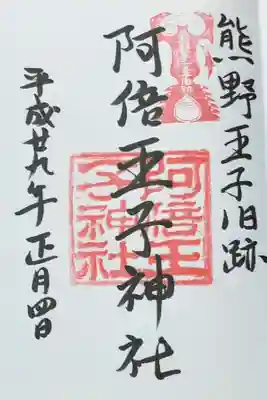 熊野王子旧跡
阿倍王子神社
平成廿九年正月四日
阿倍王子神社